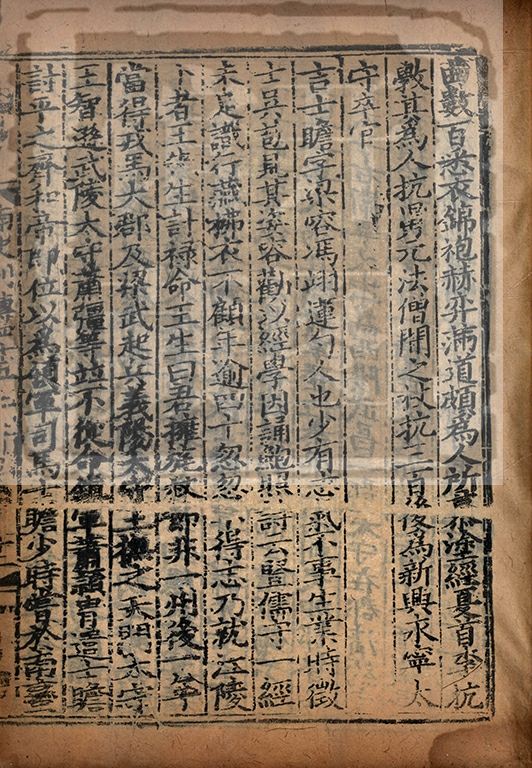 齒數百悉衣錦袍赫弈滿道頗為人所慕塗經夏首李抗
敷其為人抗舅元法僧聞之杖抗三百後為新興永寧太
守卒官
吉士瞻字梁容馮翊蓮勺人也少有志氣不事生業時徵
士吳苞見其姿容勸以經學因誦鮑照詩云豎儒守一經
未足識行藏拂衣不顧年逾四十忽忽不得志乃就江陵
卜者王先生計祿命王生曰君擁旄杖節非一州後一年
當得戎馬大郡及梁武起兵義陽太守王撫之天門太守
王智遜武陵太守蕭彊等並不從命鎮軍蕭穎冑遣士瞻
討平之齊和帝即位以為領軍司馬士瞻少時嘗於南蠻